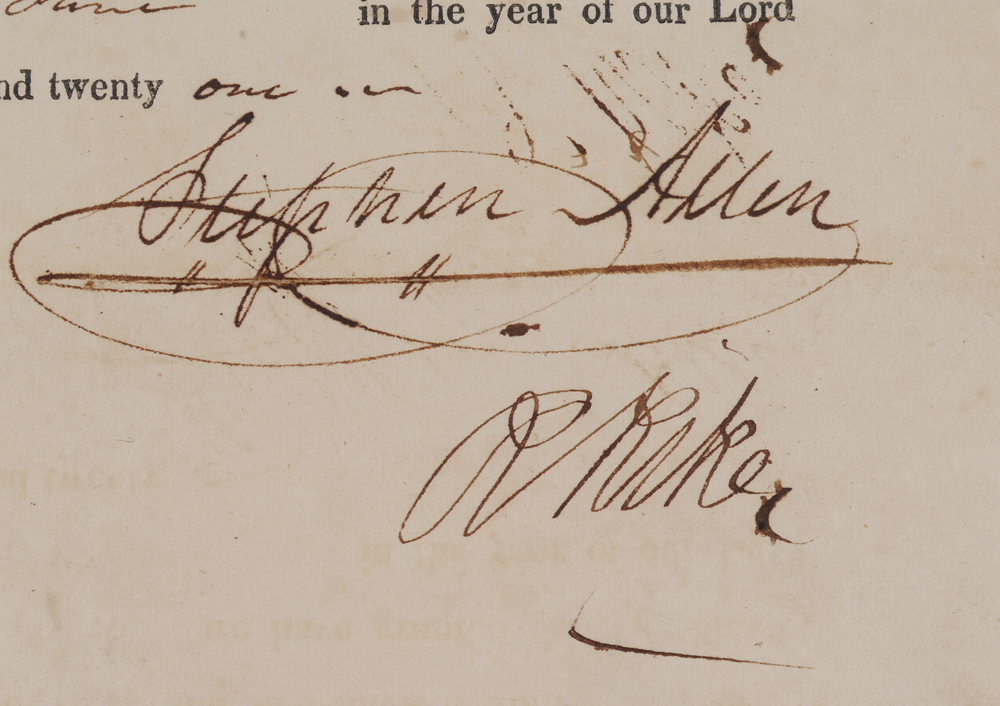 June in the year of our Lord
nd twenty one
Stephen Allen
R Riker